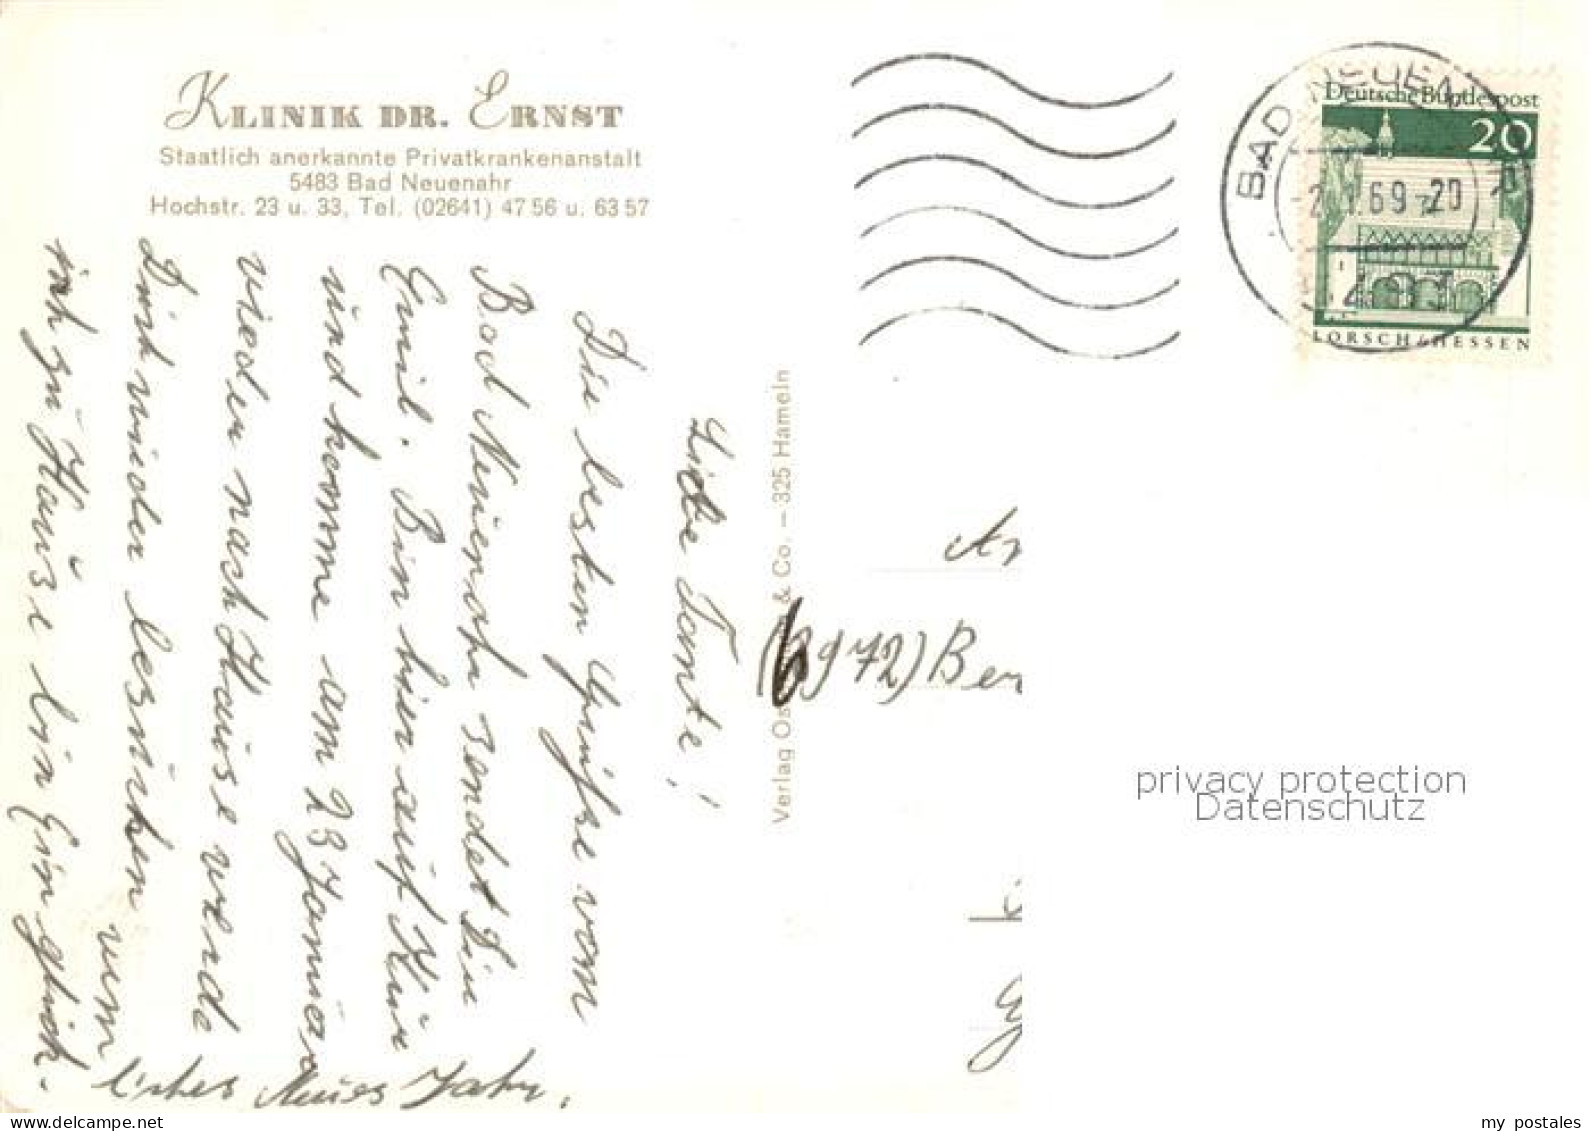 KLINIK DR. ERNST
Staatlich anerkannte Privatkrankenanstalt
5483 Bad Neuenahr
Hochstr. 23 u. 33, Tel. (02641) 47 56 u. 63 57
Liebe Tante!
Die besten Grüße vom
Bad Neuenahr sendet Dir
Emil. Bin hier auf Kur
und komme am 23 Januar
wieder nach Hause werde
Dich wieder besuchen wenn
ich zu Hause bin Ein glück
liches Neues Jahr.
Verlag & Co. – 325 Hameln
Deutsche Bundespost
20
LORSCH/HESSEN
BAD NEUEN
69-20
An
(6972) Ber
privacy protection
Datenschutz
my postales